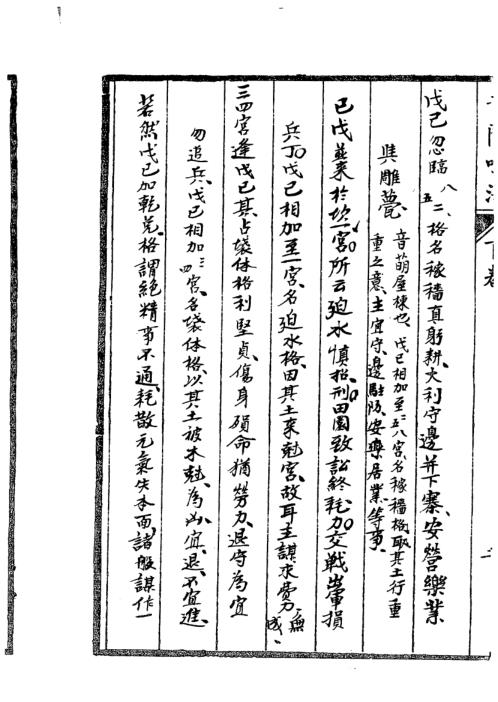 戊己忽臨八、二、五格名稼穡真躬耕、大利守邊并下寨、安營樂業
與雕甍、音萌屋棟也、戊己相加至五二八宮、名稼穡格、取其土行重
重之意、主宜守邊駐防、安樂居業等事、
己戊兼來於坎一宮、所云廹水慎招刑、田園致訟終耗力、交戰當軍損
兵丁、戊己相加至一宮、名廹水格、因其土來尅宮、故耳主謀求費力、無成、
三四宮逢戊己其、占袋体格利堅貞、傷身殞命猶勞力、退守為宜
勿追兵、戊己相加三四宮、名袋体格、以其土被木尅、為凶、宜退、不宜進、
若然戊己加乾兌、格謂絕精事不通、耗散元氣失本面、諸般謀作一